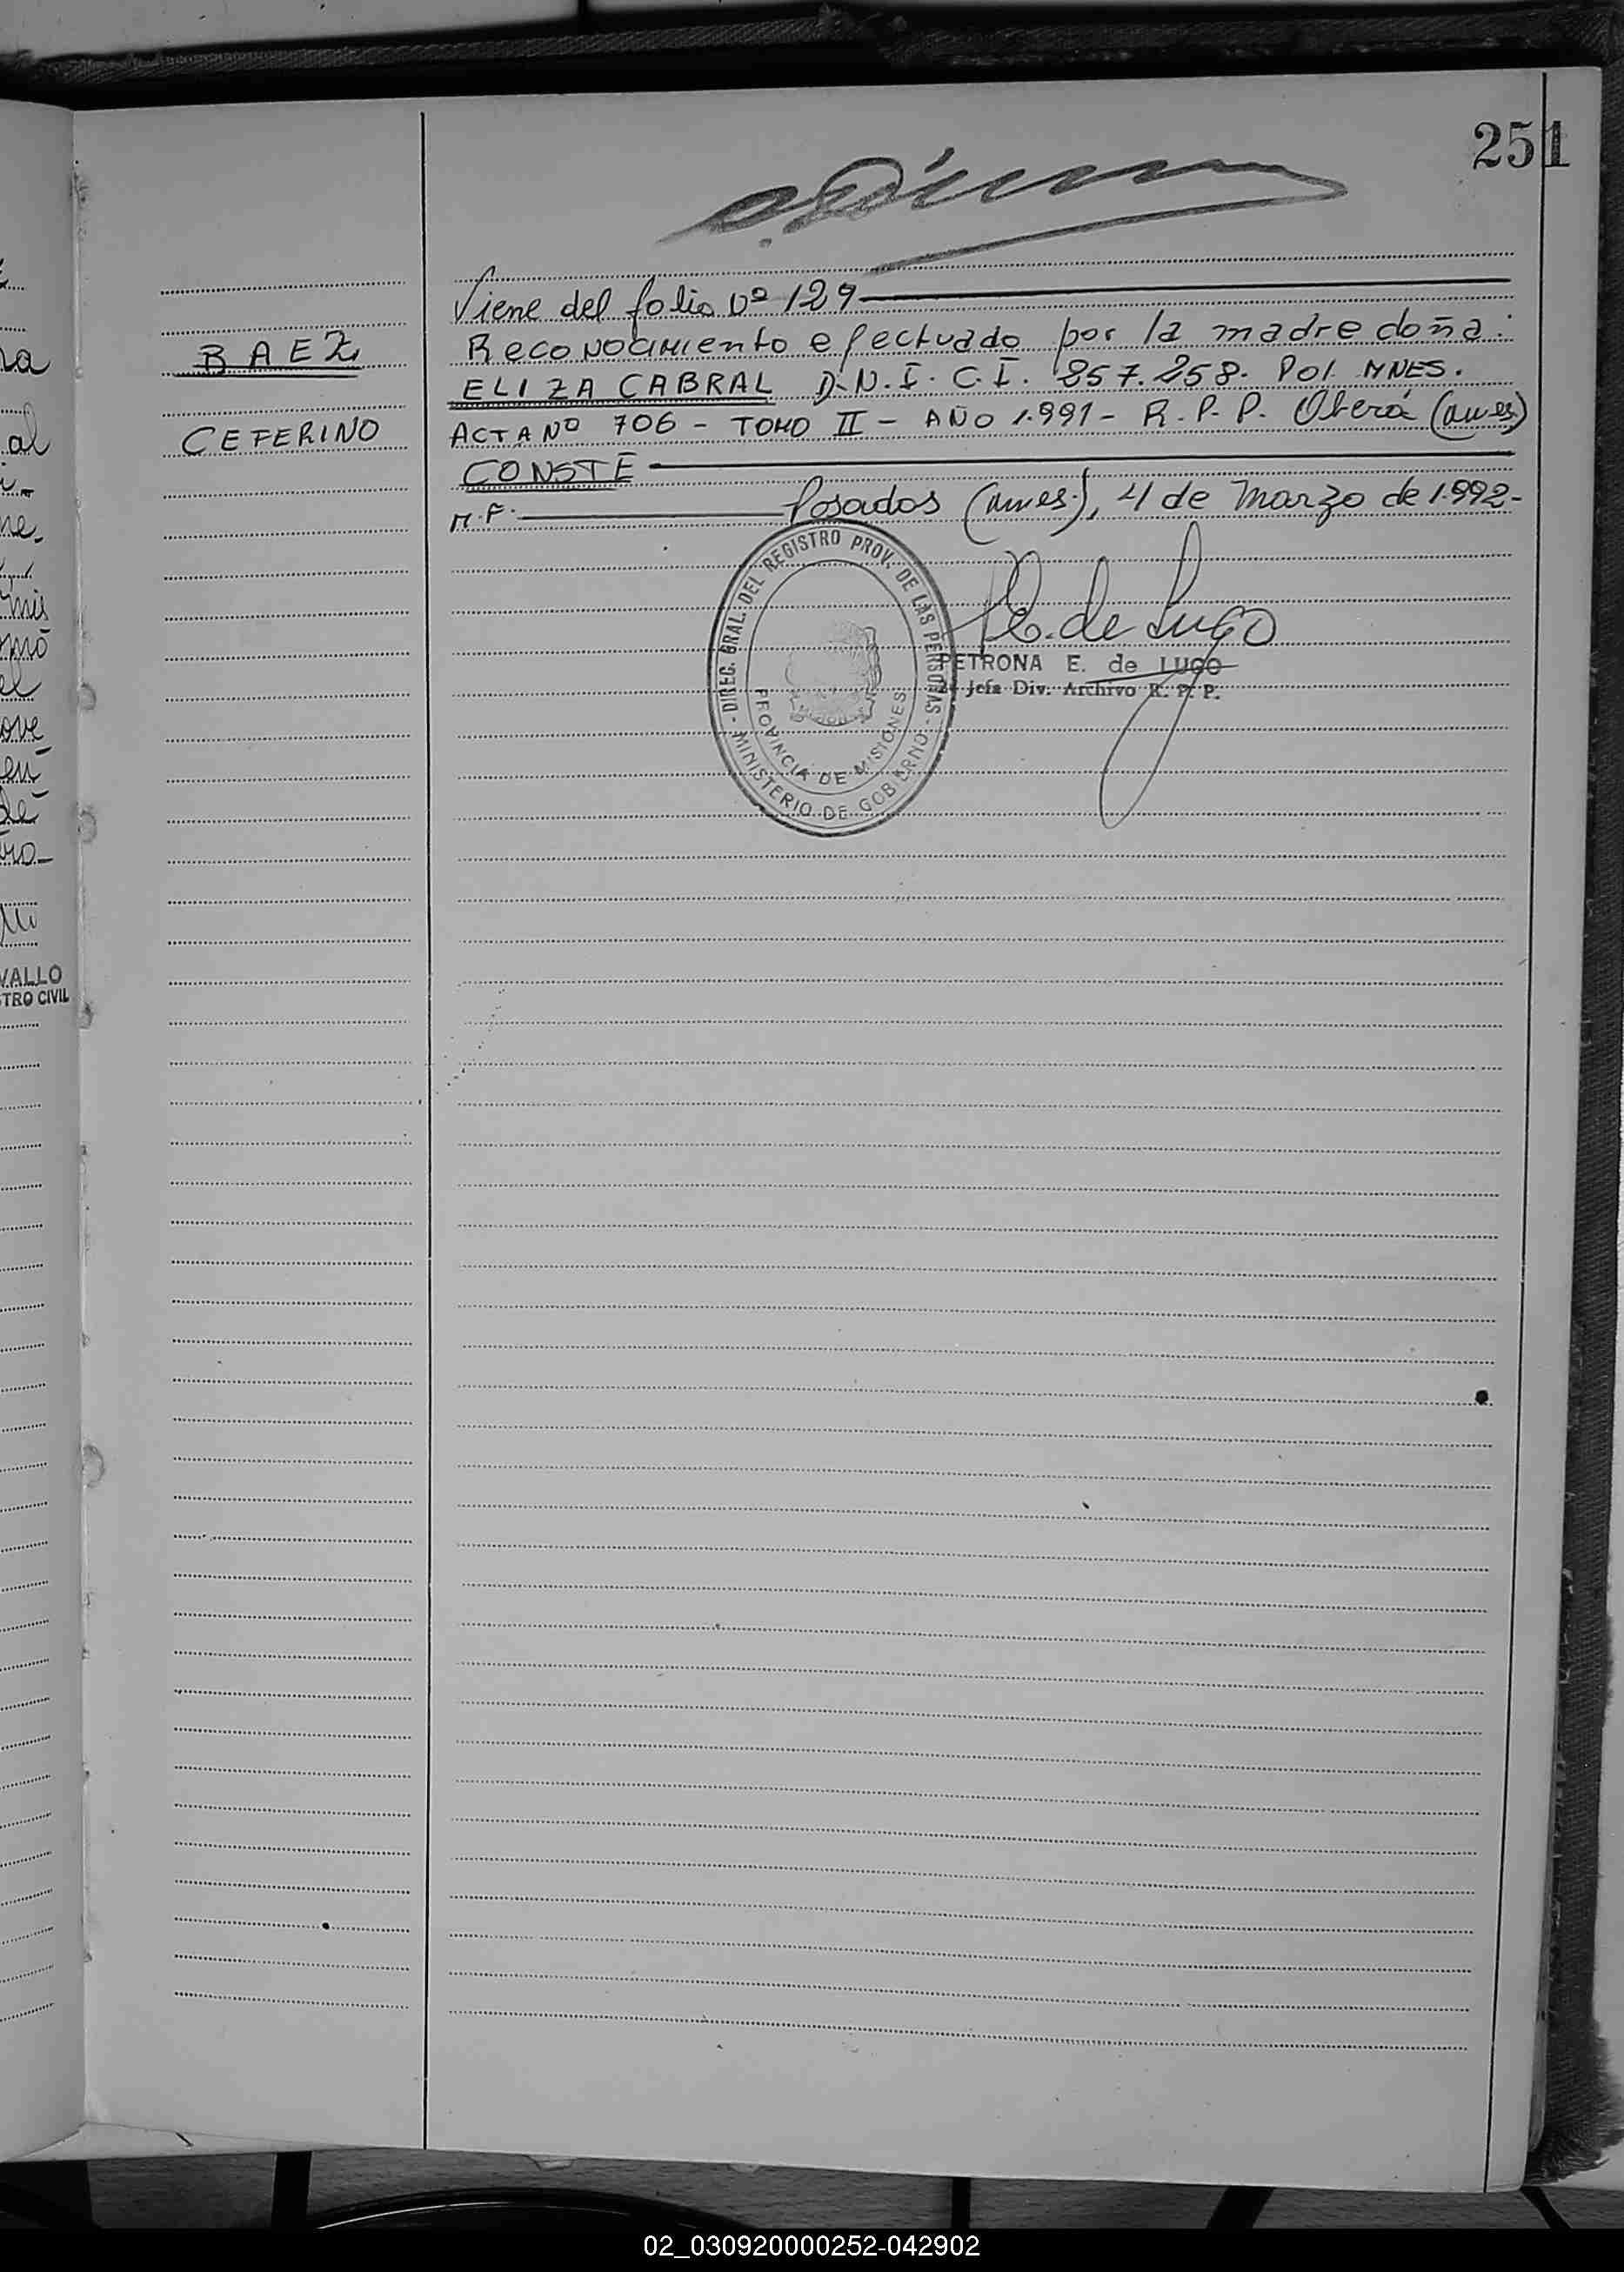 251
Viene del folio Nº 129
BAEZ
CEFERINO
Reconocimiento efectuado por la madre doña:
ELIZA CABRAL D.N.I. C.I. 257.258. Pol. MNES.
ACTA Nº 706 - TOMO II - AÑO 1.991 - R.P.P. Oberá (Mnes)
CONSTE
M.F. Posadas (Mnes.), 4 de Marzo de 1.992-
- DIREC. GRAL. DEL REGISTRO PROV. DE LAS PERSONAS -
MINISTERIO DE GOBIERNO
PROVINCIA DE MISIONES
E. de Lugo
PETRONA E. de LUGO
Jefa Div. Archivo R. P. P.
na
al
ne.
mis
mó
el
ove
en
de
ro-
VALLO
STRO CIVIL
02_030920000252-042902